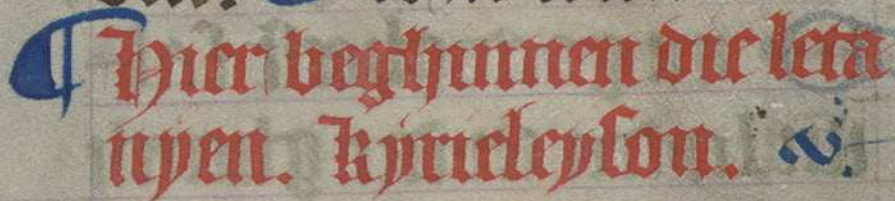 ¶ Hier beghinnen die leta
nyen. kyrieleyson.